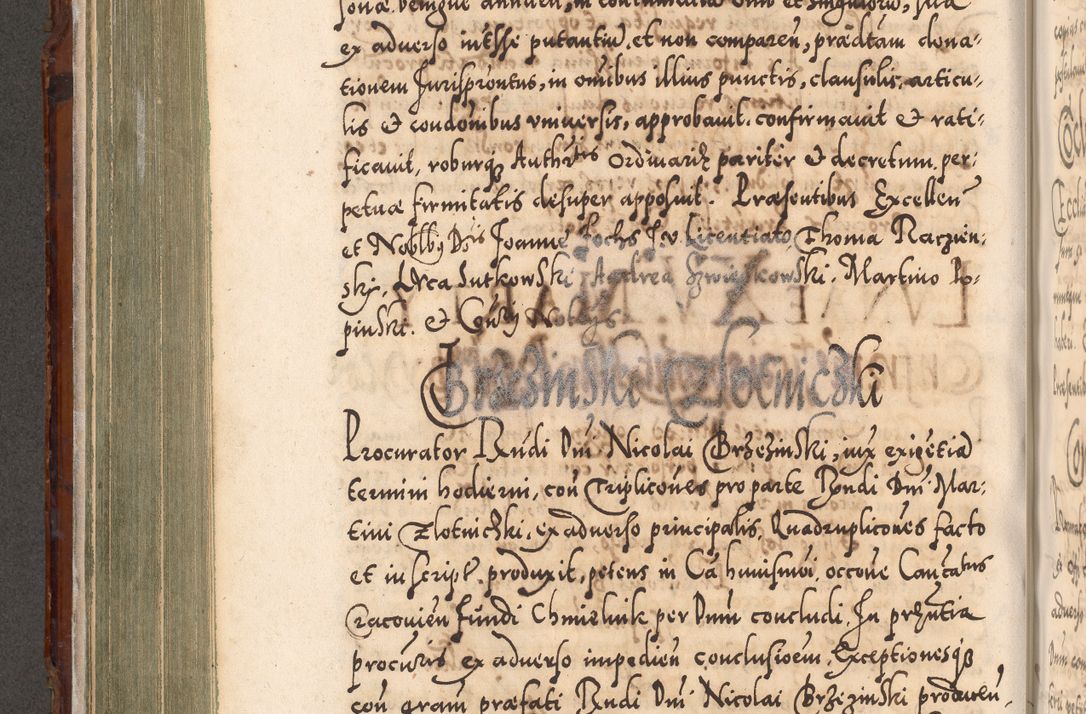 ex adverso inesse putantiu, et non comparen, prædtam dona-
tionem Jurisprontus, in omibus illius punctis, clausulis, articu-
lis & condonibus universis, approbavit, confirmavit & rati-
ficavit, roburq Authrtis Ordinariæ pariter & decretum per-
petuæ firmitatis desuper apposuit. Præsentibus Excellen
et Nobbs Dnis Joanne Fochs J.V. Licentiato, Thoma Raczien-
sky, Luca Sutkowski, Andrea Szwieykowski, Martino Ro-
pinski, & Notrys
Brzezinski Zlotniczki
Procurator Rndi Dni Nicolai Brzezinski, iux exigetia
termini hodierni, con Triplicones pro parte Rndi Dni Mar-
tini Zlotniczki, ex adverso principalis, Quadruplicones facto
et in script produxit, petens in Ca huiusmoi, occone Canctatus
Cracovien fundi Chmielnik per Dnum concludi. In prentia
procuris ex adverso impedien conclusioem, Exceptionesq
con gram præfati Rndi Dni Nicolai Brzezinski producen